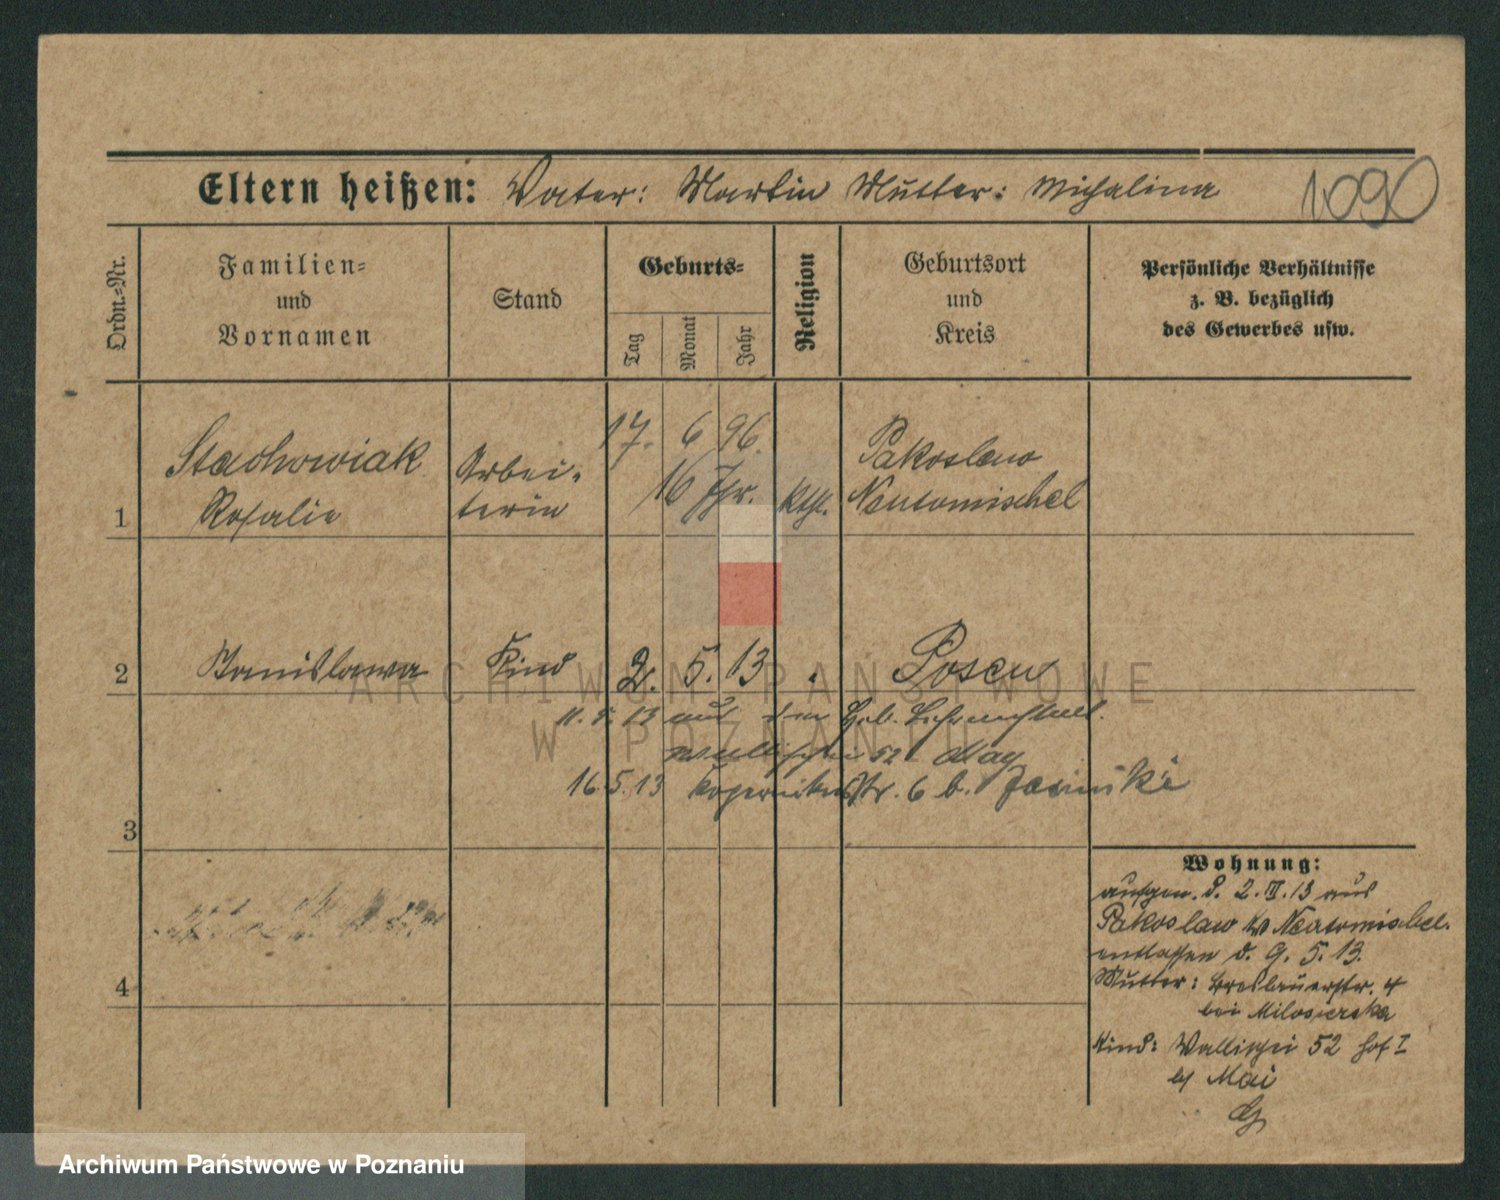 Eltern heißen: Vater: Martin Mutter: Michalina 1090
Ordn.-Nr.
Familien-
und
Vornamen
Stand
Geburts-
Tag
Monat
Jahr
Religion
Geburtsort
und
Kreis
Persönliche Verhältnisse
z. B. bezüglich
des Gewerbes usw.
17. 6 96.
Stachowiak Arbei- Pakoslaw
1 Rosalie terin 16 Jhr. kth. Neutomischel
2 Stanislawa Kind 2. 5. 13 Posen
11. 5. 13 aus der Lehranstalt.
Wallischei 52 May
16.5.13 Kopernikusstr. 6 b. Jasinski
3
Wohnung:
aufgen. d. 2. II. 13 aus
Pakoslaw Kr Neutomischel.
entlassen d. 9. 5. 13.
4
Mutter: Breslauerstr. 4
bei Miloszerska
Kind: Wallischei 52 Hof I
bei Mai
ARCHIWUM PAŃSTWOWE
W POZNANIU
Archiwum Państwowe w Poznaniu